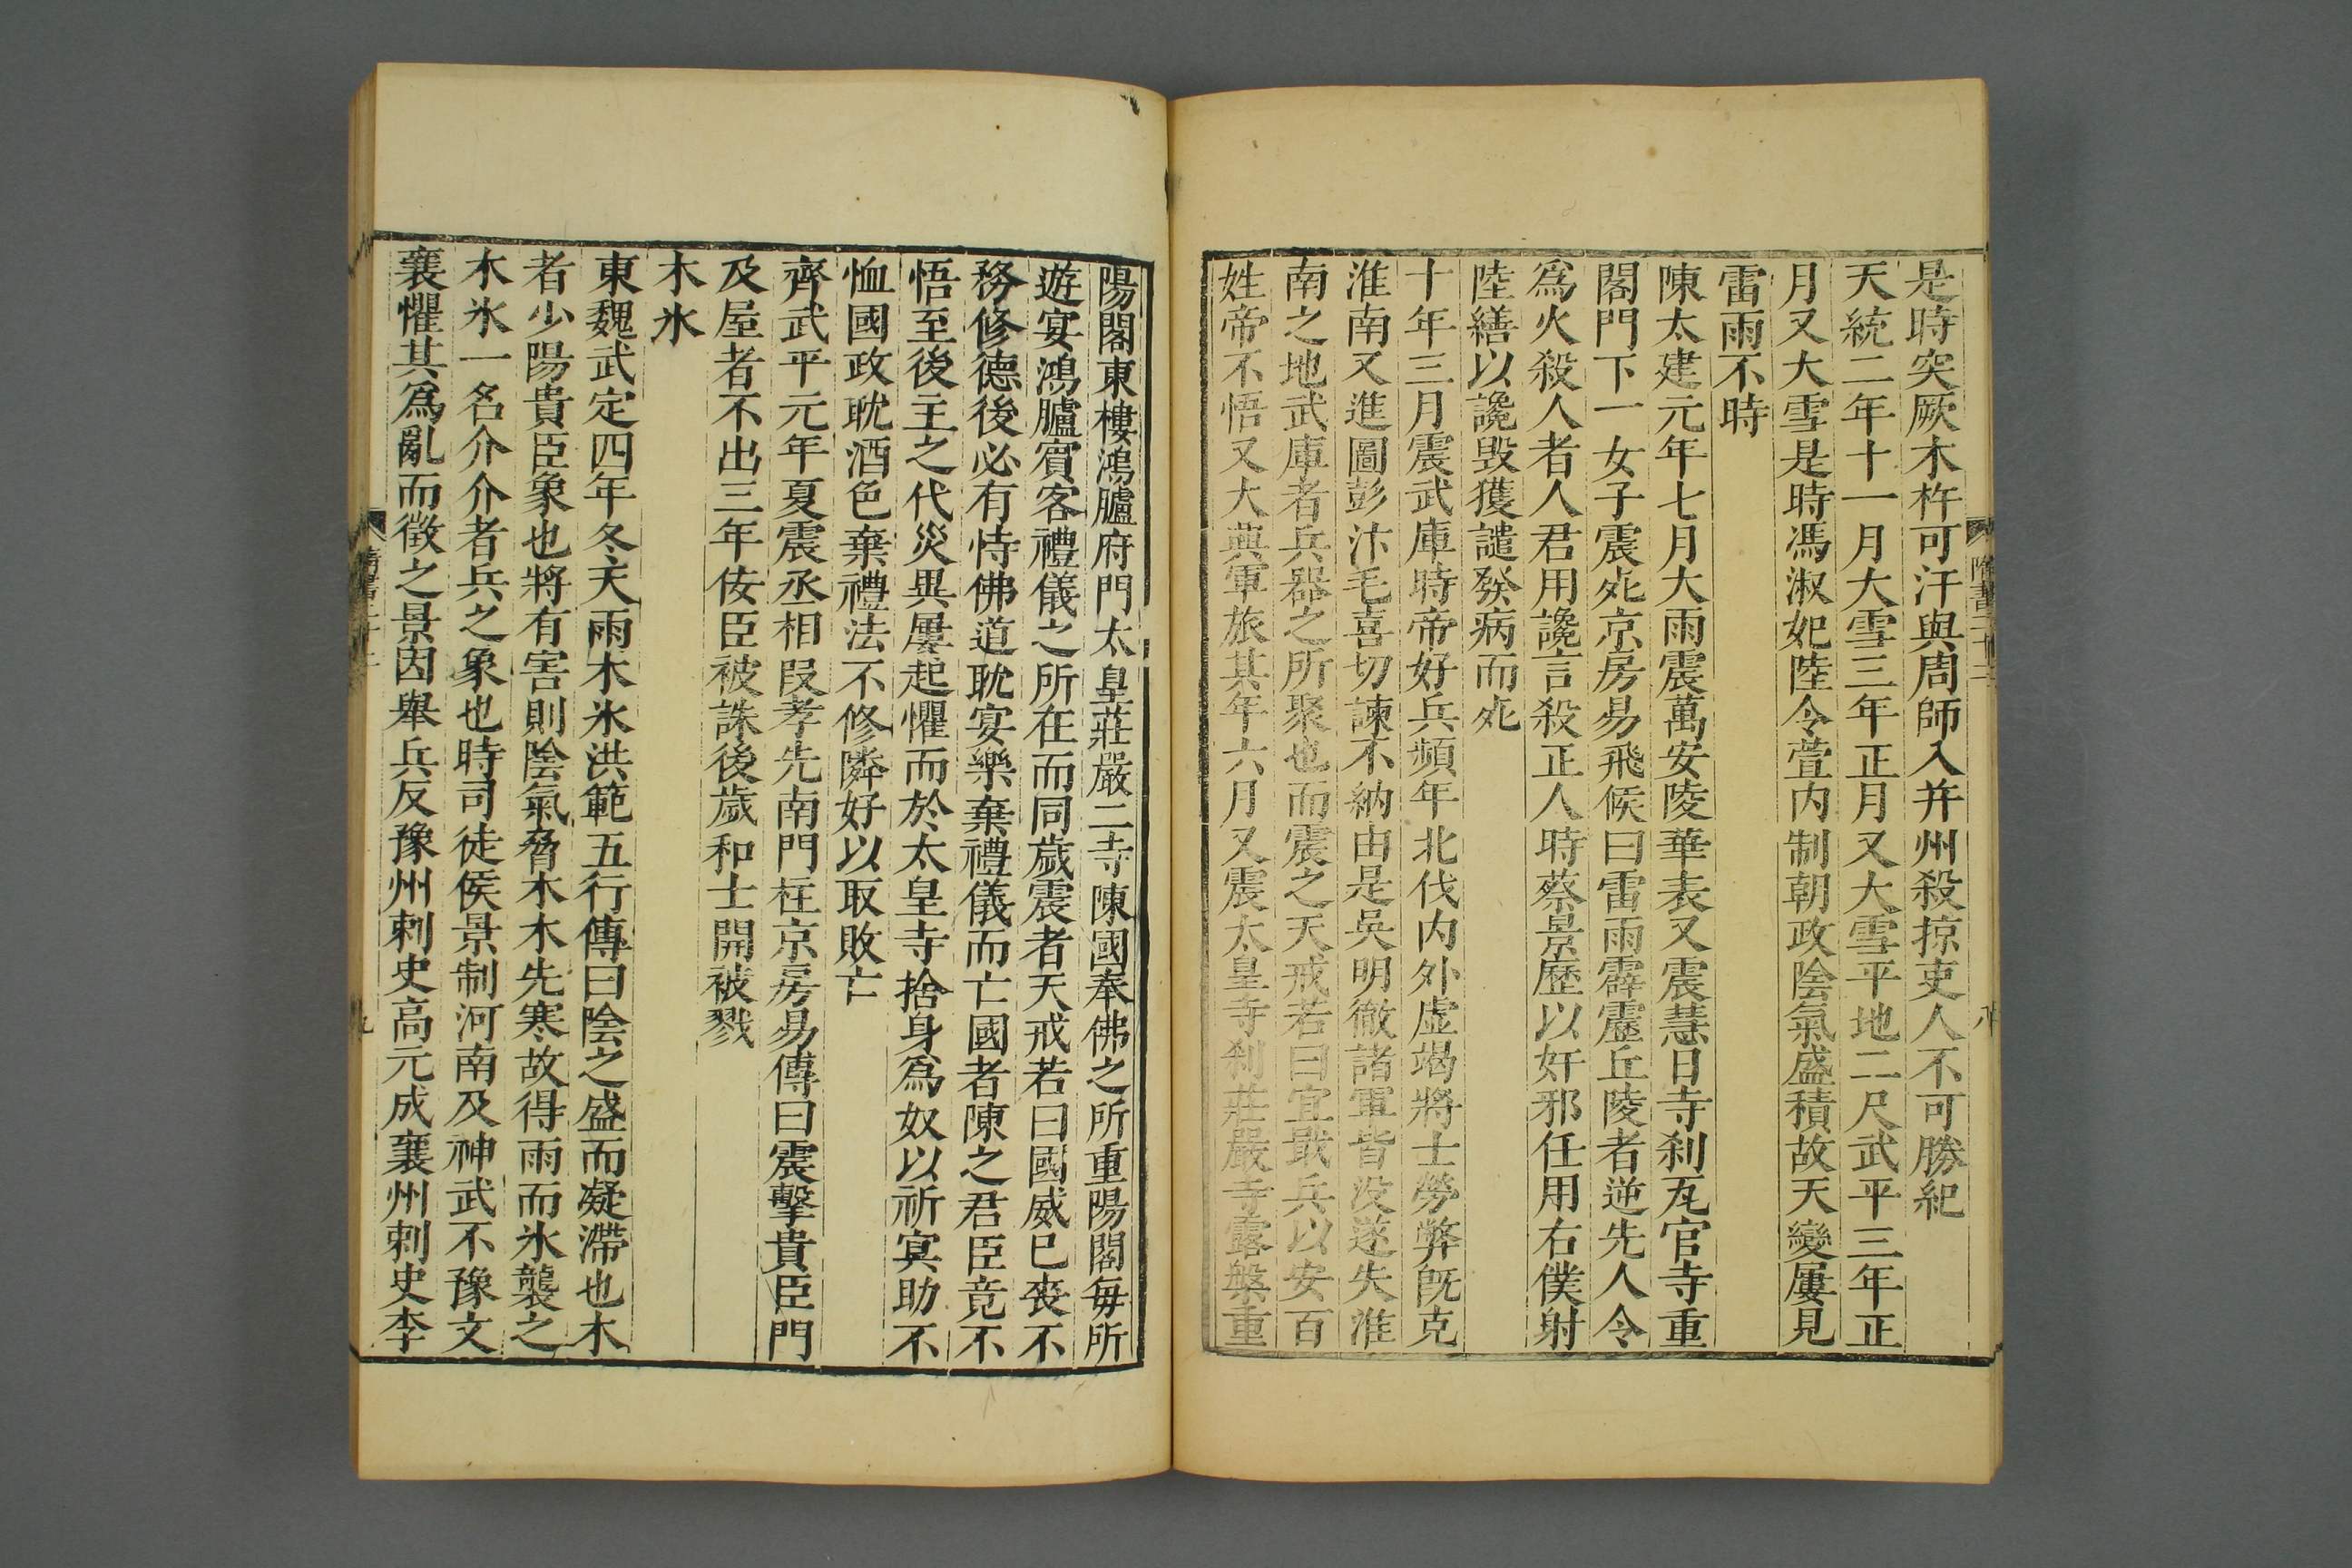 是時突厥木杵可汗與周師入并州殺掠吏人不可勝紀
天統二年十一月大雪三年正月又大雪平地二尺武平三年正
月又大雪是時馮淑妃陸令萱内制朝政陰氣盛積故天變屢見
雷雨不時
陳太建元年七月大雨震萬安陵華表又震慧日寺刹瓦官寺重
閣門下一女子震死京房易飛候曰雷雨霹靂丘陵者逆先人令
爲火殺人者人君用讒言殺正人時蔡景歷以奸邪任用右僕射
陸繕以讒毀獲譴發病而死
十年三月震武庫時帝好兵頻年北伐内外虚竭將士勞弊旣克
淮南又進圖彭汴毛喜切諫不納由是吳明徹諸軍皆没遂失淮
南之地武庫者兵器之所聚也而震之天戒若曰宜戢兵以安百
姓帝不悟又大興軍旅其年六月又震太皇寺刹莊嚴寺露槃重
隋書二十二
八
陽閣東樓鴻臚府門太皇莊嚴二寺陳國奉佛之所重陽閣每所
遊宴鴻臚賓客禮儀之所在而同歲震者天戒若曰國威已喪不
務修德後必有恃佛道耽宴樂棄禮儀而亡國者陳之君臣竟不
悟至後主之代災異屢起懼而於太皇寺捨身爲奴以祈冥助不
恤國政耽酒色棄禮法不修隣好以取敗亡
齊武平元年夏震丞相段孝先南門柱京房易傳曰震擊貴臣門
及屋者不出三年佞臣被誅後歲和士開被戮
木氷
東魏武定四年冬天雨木氷洪範五行傳曰陰之盛而凝滯也木
者少陽貴臣象也將有害則陰氣脅木木先寒故得雨而氷襲之
木氷一名介介者兵之象也時司徒侯景制河南及神武不豫文
襄懼其爲亂而徵之景因舉兵反豫州刺史高元成襄州刺史李
九